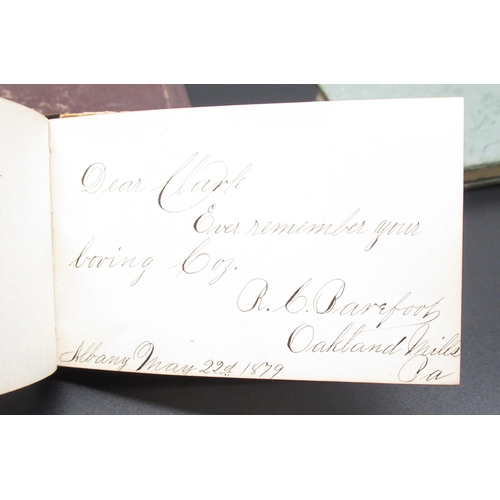 Dear Clark
Ever remember your
loving Coz.
R. C. Barefoot
Oakland Mills
Pa
Albany May 22d 1879